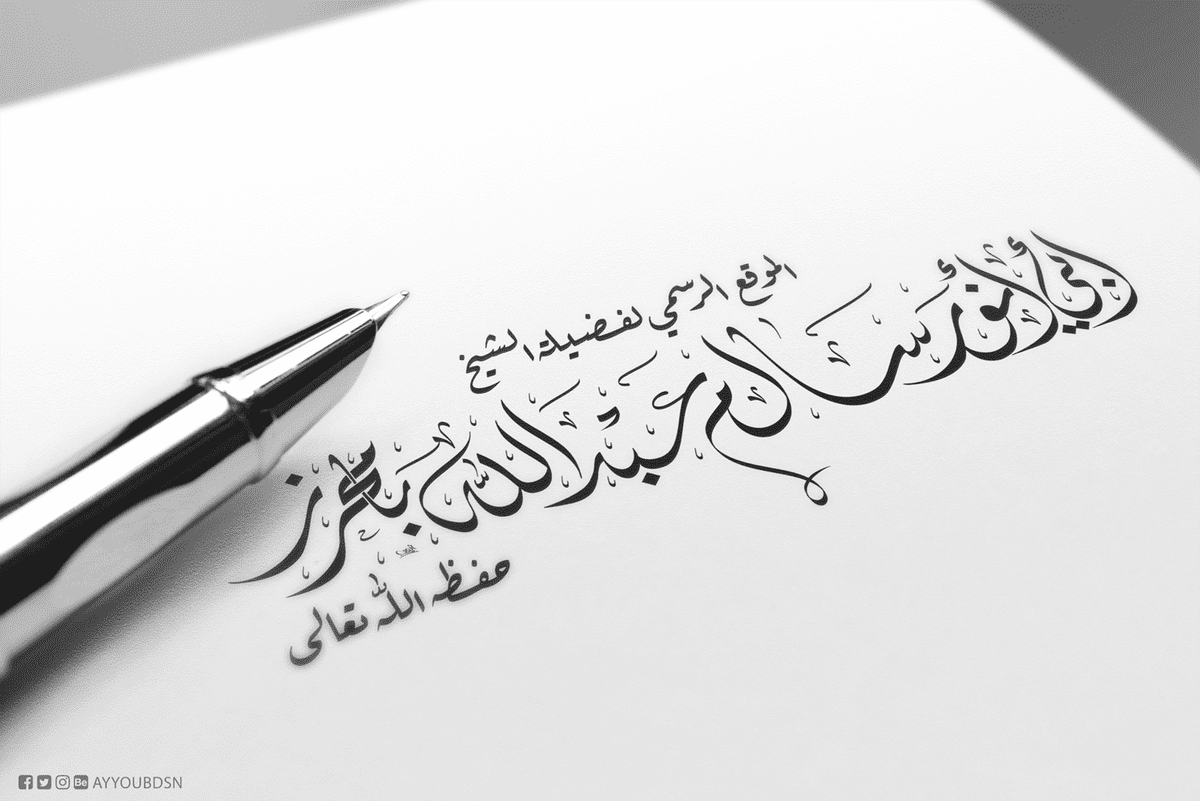 الموقع الرسمي لفضيلة الشيخ
أبي أنور سالم عبد الله بامحرز
حفظه الله تعالى
AYYOUBDSN